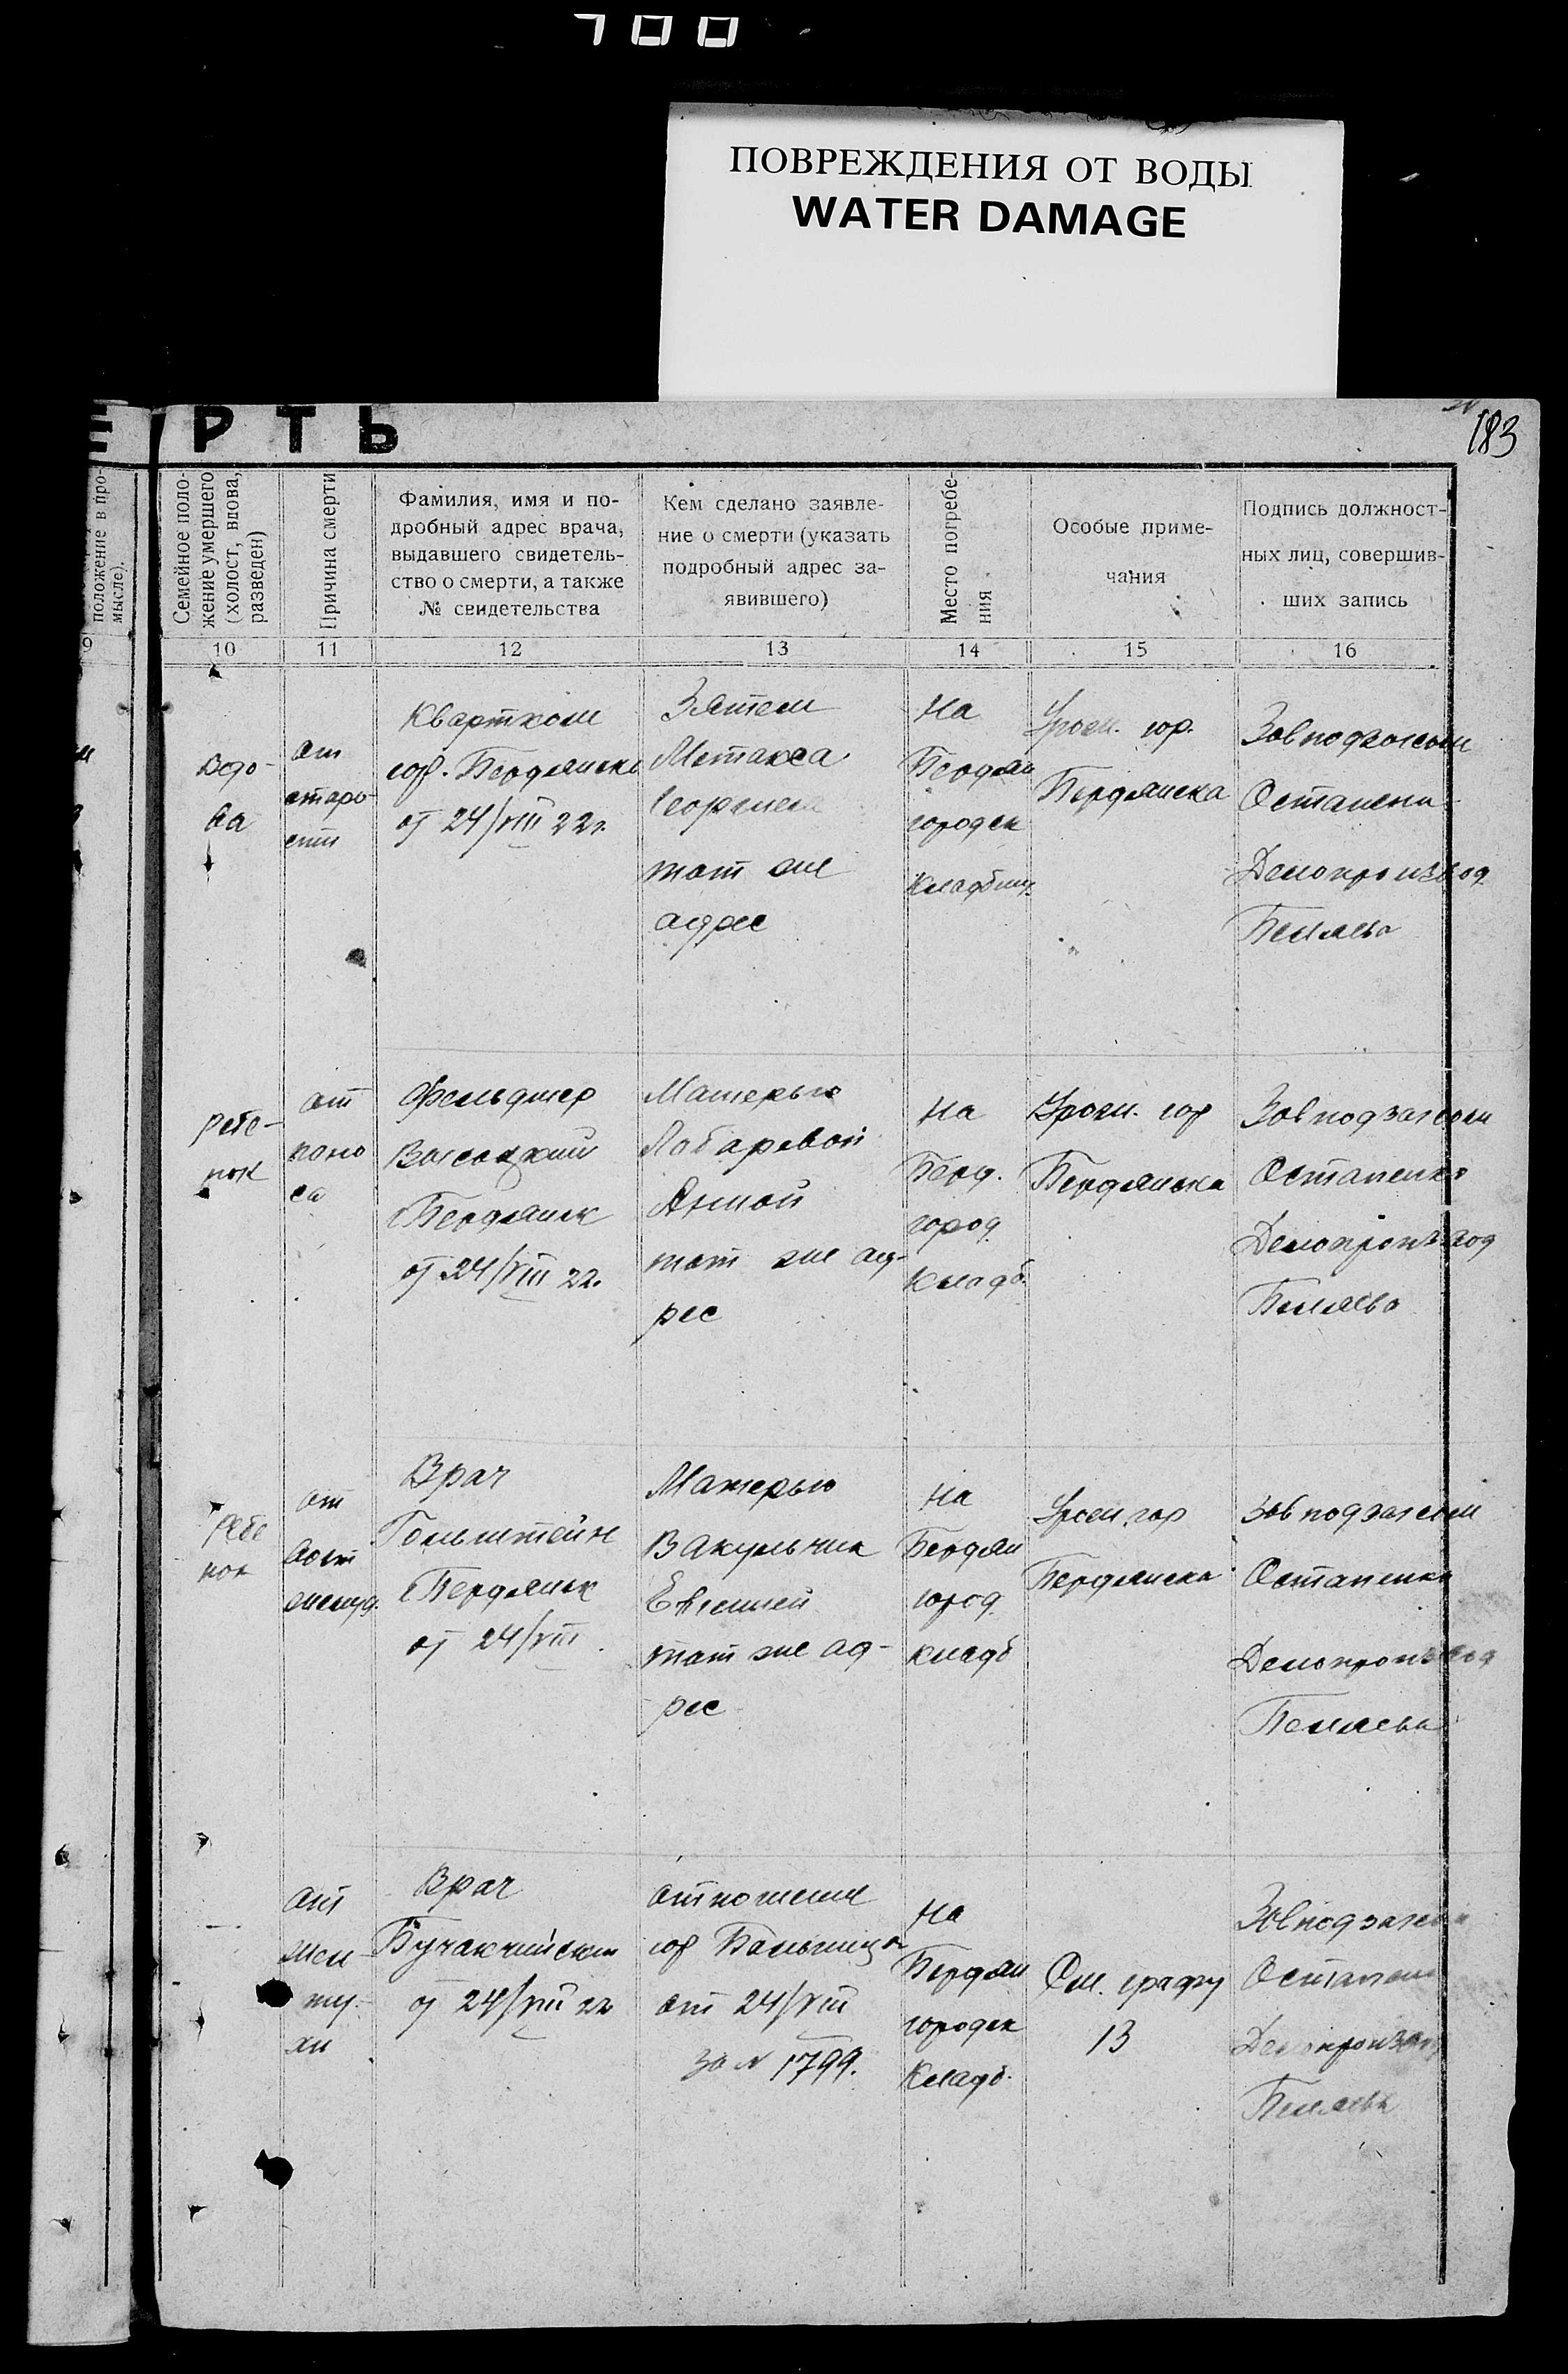 ПОВРЕЖДЕНИЯ ОТ ВОДЫ
WATER DAMAGE
183
Е Р Т Ь
положение в про-
мысле).
Семейное поло-
жение умершего
(холост, вдова,
разведен)
Причина смерти
Фамилия, имя и по-
дробный адрес врача,
выдавшего свидетель-
ство о смерти, а также
№ свидетельства
Кем сделано заявле-
ние о смерти (указать
подробный адрес за-
явившего)
Место погребе-
ния
Особые приме-
чания
Подпись должност-
ных лиц, совершив-
ших запись
9 10 11 12 13 14 15 16
вдо-
ва
от
старо-
сти
Квартком
гор. Бердянска
от 24/VIII 22г.
Зятем
Метакса
Георгием
тот же
адрес
На
Бердян
городск
кладбищ.
Урож. гор.
Бердянска
Завподзагсом
Остапенко
Делопроизвод
Беляева
ребе-
нок
от
поно
са
Фельдшер
Высоцкий
Бердянск
от 24/VIII 22.
Матерью
Анной
тот же ад-
рес
На
Берд.
город
кладб.
Урож. гор
Бердянска
Завподзагсом
Остапенко
Делопроизвод
Беляева
Ребе
нок
от
восп
желуд.
Врач
Гольштейн
Бердянск
от 24/VIII.
Матерью
Вакульчик
Евгенией
тот же ад-
рес
На
Бердян
город
кладб
Урож. гор
Бердянска
Завподзагсом
Остапенко
Делопроизвод
Беляева
—
от
Врач
от 24/VIII 22
отношение
гор Больницы
от 24/VIII
за № 1799.
На
Бердян
городск
кладб.
См. графу
13
Завподзагсом
Остапенко
Делопроизвод
Беляева